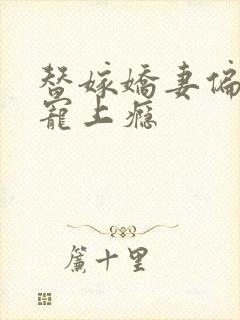 替嫁嬌妻偏
寵上癮
簾十里